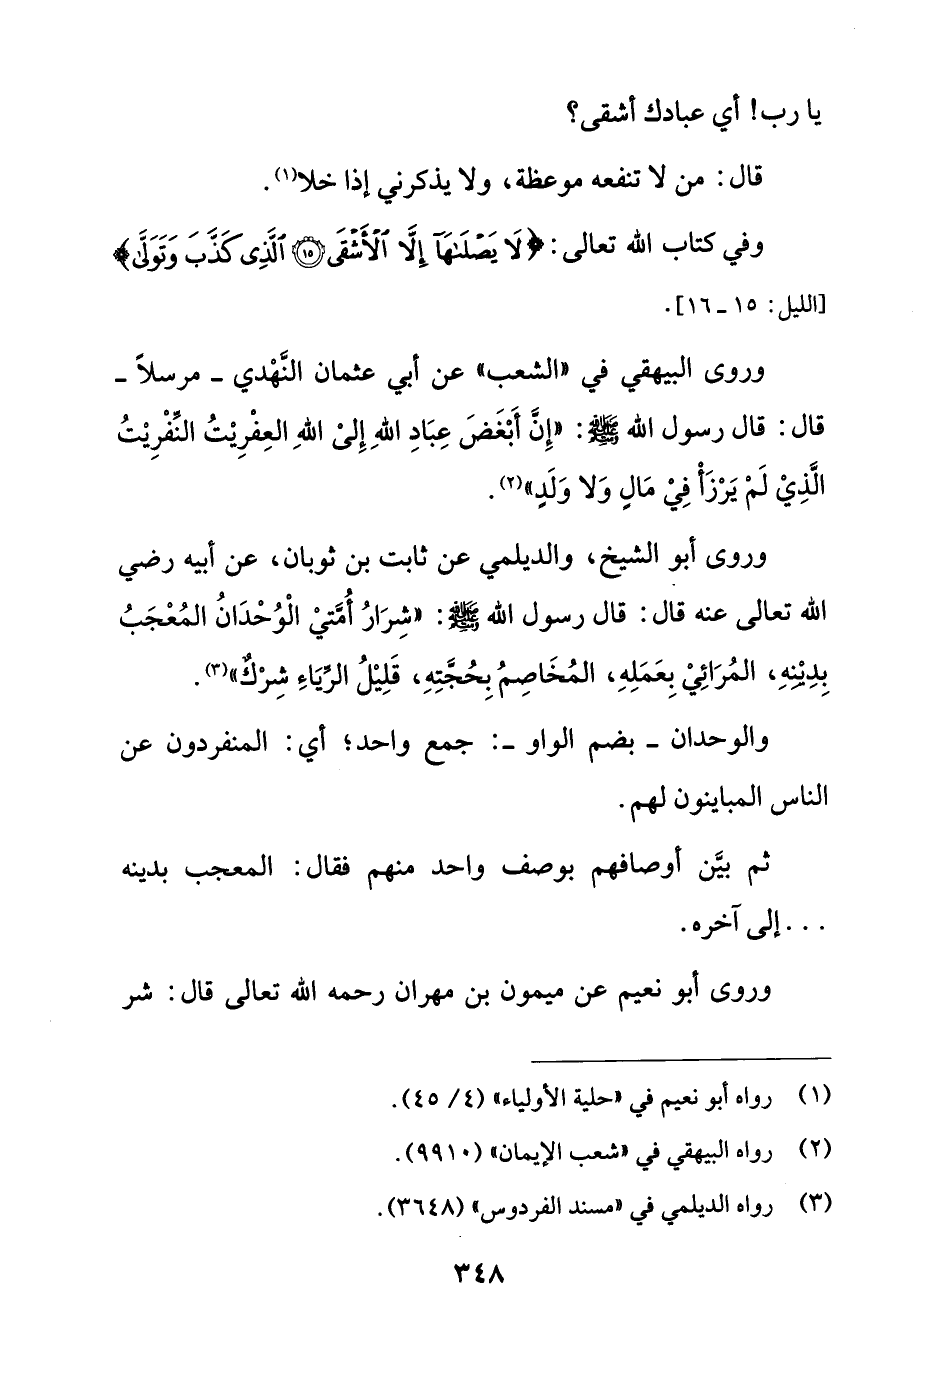 يا رب! أي عبادك أشقى؟
قال: من لا تنفعه موعظة، ولا يذكرني إذا خلا(١).
وفي كتاب الله تعالى: ﴿لَا يَصْلَىٰهَآ إِلَّا ٱلْأَشْقَى ۝١٥ ٱلَّذِى كَذَّبَ وَتَوَلَّىٰ﴾
[الليل: ١٥ ـ ١٦].
وروى البيهقي في «الشعب» عن أبي عثمان النَّهْدي ـ مرسلاً ـ
قال: قال رسول الله ﷺ: «إِنَّ أَبْغَضَ عِبَادِ اللهِ إِلىْ اللهِ العِفْرِيْتُ النِّفْرِيْتُ
الَّذِيْ لَمْ يَرْزَأْ فِيْ مَالٍ وَلا وَلَدٍ»(٢).
وروى أبو الشيخ، والديلمي عن ثابت بن ثوبان، عن أبيه رضي
الله تعالى عنه قال: قال رسول الله ﷺ: «شِرَارُ أُمَّتِيْ الْوُحْدَانُ المُعْجَبُ
بِدِيْنِهِ، المُرَائِيْ بِعَمَلِهِ، المُخَاصِمُ بِحُجَّتِهِ، قَلِيْلُ الرِّيَاءِ شِرْكٌ»(٣).
والوحدان ـ بضم الواو ـ: جمع واحد؛ أي: المنفردون عن
الناس المباينون لهم.
ثم بيَّن أوصافهم بوصف واحد منهم فقال: المعجب بدينه
... إلى آخره.
وروى أبو نعيم عن ميمون بن مهران رحمه الله تعالى قال: شر
(١) رواه أبو نعيم في «حلية الأولياء» (٤/ ٤٥).
(٢) رواه البيهقي في «شعب الإيمان» (٩٩١٠).
(٣) رواه الديلمي في «مسند الفردوس» (٣٦٤٨).
٣٤٨